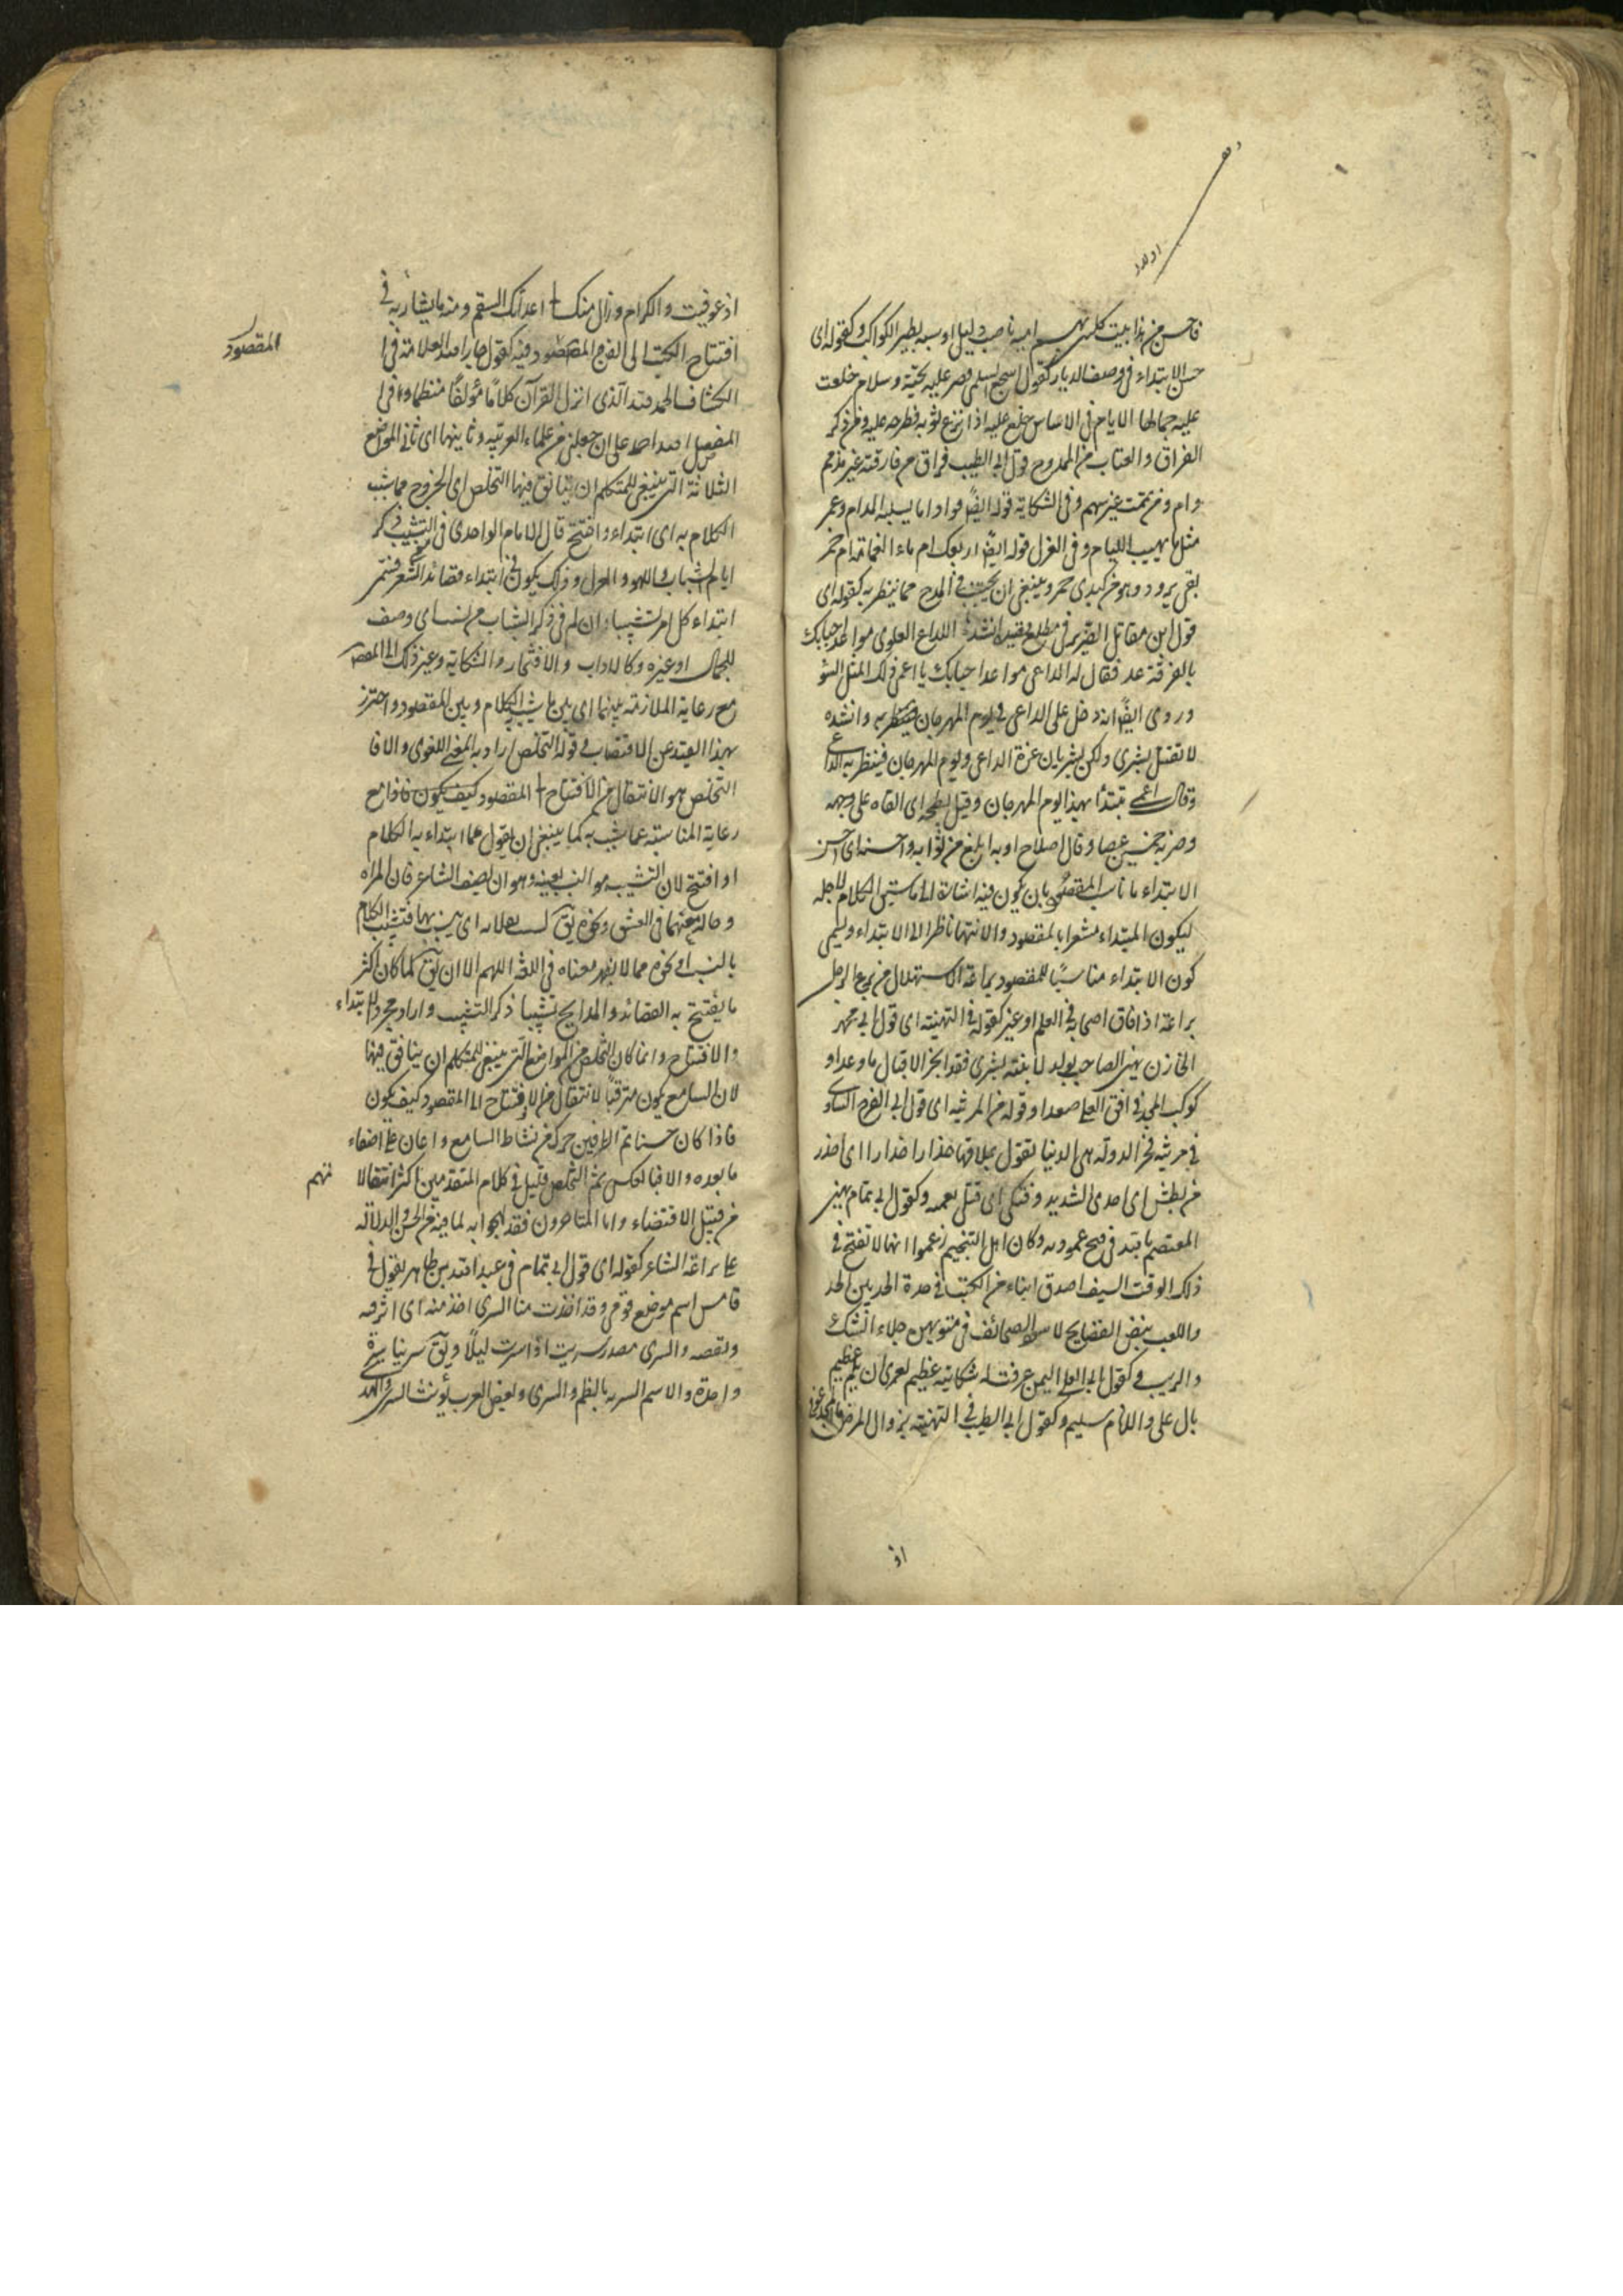 فاحسن من هذا بيت كلينى لهم يا اميمة ناصب وليل اقاسيه بطىء الكواكب وكقوله اى
حسن الابتداء فى وصف الديار كقول اشجع السلمى قصر عليه تحية وسلام خلعت
عليه جمالها الايام فى الاساس خلع عليه اذا نزع ثوبه فطرحه عليه وفى ذكر
الفراق والعتاب من الممدوح قول ابى الطيب فراق من فارقت غير مذمم
وام ومن يممت غير ميمم وفى الشكاية قوله ايضًا فواد ما يسليه المدام وعمر
مثل ما يهب اللئام وفى الغزل قوله ايضًا اريقك ام ماء الغمامة ام خمر
بفى برود وهو فى كبدى جمر وينبغى ان يجتنب فى المدح مما يتطير به كقوله اى
قول ابن مقاتل الضرير فى مطلع قصيدة انشدها الداعى العلوى موعد احبابك
بالفرقة غد فقال له الداعى موعد احبابك يا اعمى ولك المثل السو
وروى ايضًا انه دخل على الداعى فى يوم المهرجان وانشده
لا تقل بشرى ولكن بشريان غرة الداعى ويوم المهرجان فتطير به الداعى
وقال اعمى تبتدأ بهذا يوم المهرجان وقيل بطحه اى القاه على وجهه
وضربه خمسين عصا وقال اصلاح ادبه ابلغ من ثوابه واحسنه اى احسن
الابتداء ما ناسب المقصود بان يكون فيه اشارة الى ما سيق الكلام لاجله
ليكون المبتداء مشعرا بالمقصود والانتهاء ناظر الى الابتداء ويسمى
كون الابتداء مناسبًا للمقصود براعة الاستهلال من برع الرجل
براعة اذا فاق اصحابه فى العلم او غيره كقوله فى التهنية اى قول ابى محمد
الخازن يهنى الصاحب بولد لابنته بشرى فقد انجز الاقبال ما وعدا و
كوكب المجد فى افق العلى صعدا وقوله فى المرثية اى قول ابى الفرج الساوى
فى مرثية فخر الدولة هى الدنيا تقول بملا فيها حذار حذار اى احذر
من بطشى اى اخذى الشديد وفتكى اى قتلى بغتة وكقول ابى تمام يهنى
المعتصم بالله فى فتح عمورية وكان اهل التنجيم زعموا انها لا تفتح فى
ذلك الوقت السيف اصدق انباء من الكتب فى حده الحد بين الجد
واللعب بيض الصفايح لا سود الصحائف فى متونهن جلاء الشك
والريب وكقول ابى العلا اليمن عرضت له شكاية عظيم لعمرى ان يلم عظيم
بال على والانام سليم وكقول ابى الطيب فى التهنية بزوال المرض المجد عوفى
اذ
اذ عوفيت والكرام وزال منك الى اعدائك السقم ومنه ما يشار به فى
افتتاح الكتب الى الفن المقصود فيه كقول جار الله العلامة فى
الكشاف الحمد لله الذى انزل القرآن كلامًا مؤلفًا منظما وفى
المفصل الله احمد على ان جعلنى من علماء العربية وثانيها اى ثانى المواضع
الثلاثة التى ينبغى للمتكلم ان يتانق فيها التخلص اى الخروج مما شبب
الكلام به اى ابتداء وافتتح قال الامام الواحدى فى التشبيب ذكر
ايام الشباب واللهو والغزل وذلك يكون فى ابتداء قصائد الشعر فسمى
ابتداء كل امر تشبيبا وان لم يكن فى ذكر الشباب من نسيب اى وصف
للجمال او غيره كالاداب والافتخار والشكاية وغير ذلك الى المقصود
مع رعاية الملازمة بينهما اى بين ما شبب به الكلام وبين المقصود واحترز
بهذا القيد عن الاقتضاب فى قوله التخلص اراد به المعنى اللغوى والا فا
التخلص هو الانتقال من الافتتاح الى المقصود كيف يكون فاذا مع
رعاية المناسبة عما شبب به كما ينبغى ان يقول عما ابتداء به الكلام
او افتتح لان التشبيب هو النسيب بعينه وهو ان يصف الشاعر فان المراه
وحاله معها فى العشق ونحوه يق نسب بفلانه اى شبب بها فتشبيب الكلام
بالنسب او نحوه مما لا يظهر معناه فى اللغة اللهم الا ان يق لما كان اكثر
ما يفتتح به القصائد والمدايح تشبيبا ذكر التشبيب واراد مجرد الابتداء
والافتتاح وانما كان التخلص من المواضع التى ينبغى للمتكلم ان يتانق فيها
لان السامع يكون مترقبًا لانتقال من الافتتاح الى المقصود كيف يكون
فاذا كان حسنا متلائم الطرفين حرك من نشاط السامع واعان على اصغاء
ما بعده والا فبالعكس ثم التخلص قليل فى كلام المتقدمين اكثر انتقالاتهم
من قبيل الاقتضاب واما المتاخرون فقد لهجوا به لما فيه من الحسن والدلالة
على براعة الشاعر كقوله اى قول ابى تمام فى عبد الله بن طاهر يقول فى
قومس اسم موضع قومى وقد اخذت منا السرى اخذ منه اى اثر فيه
ونقصه والسرى مصدر سريت اذا سرت ليلًا ويق سرينا سرية
واحدة والاسم السرية بالضم والسرى وبعض العرب يؤنث السرى والهدى
المقصود